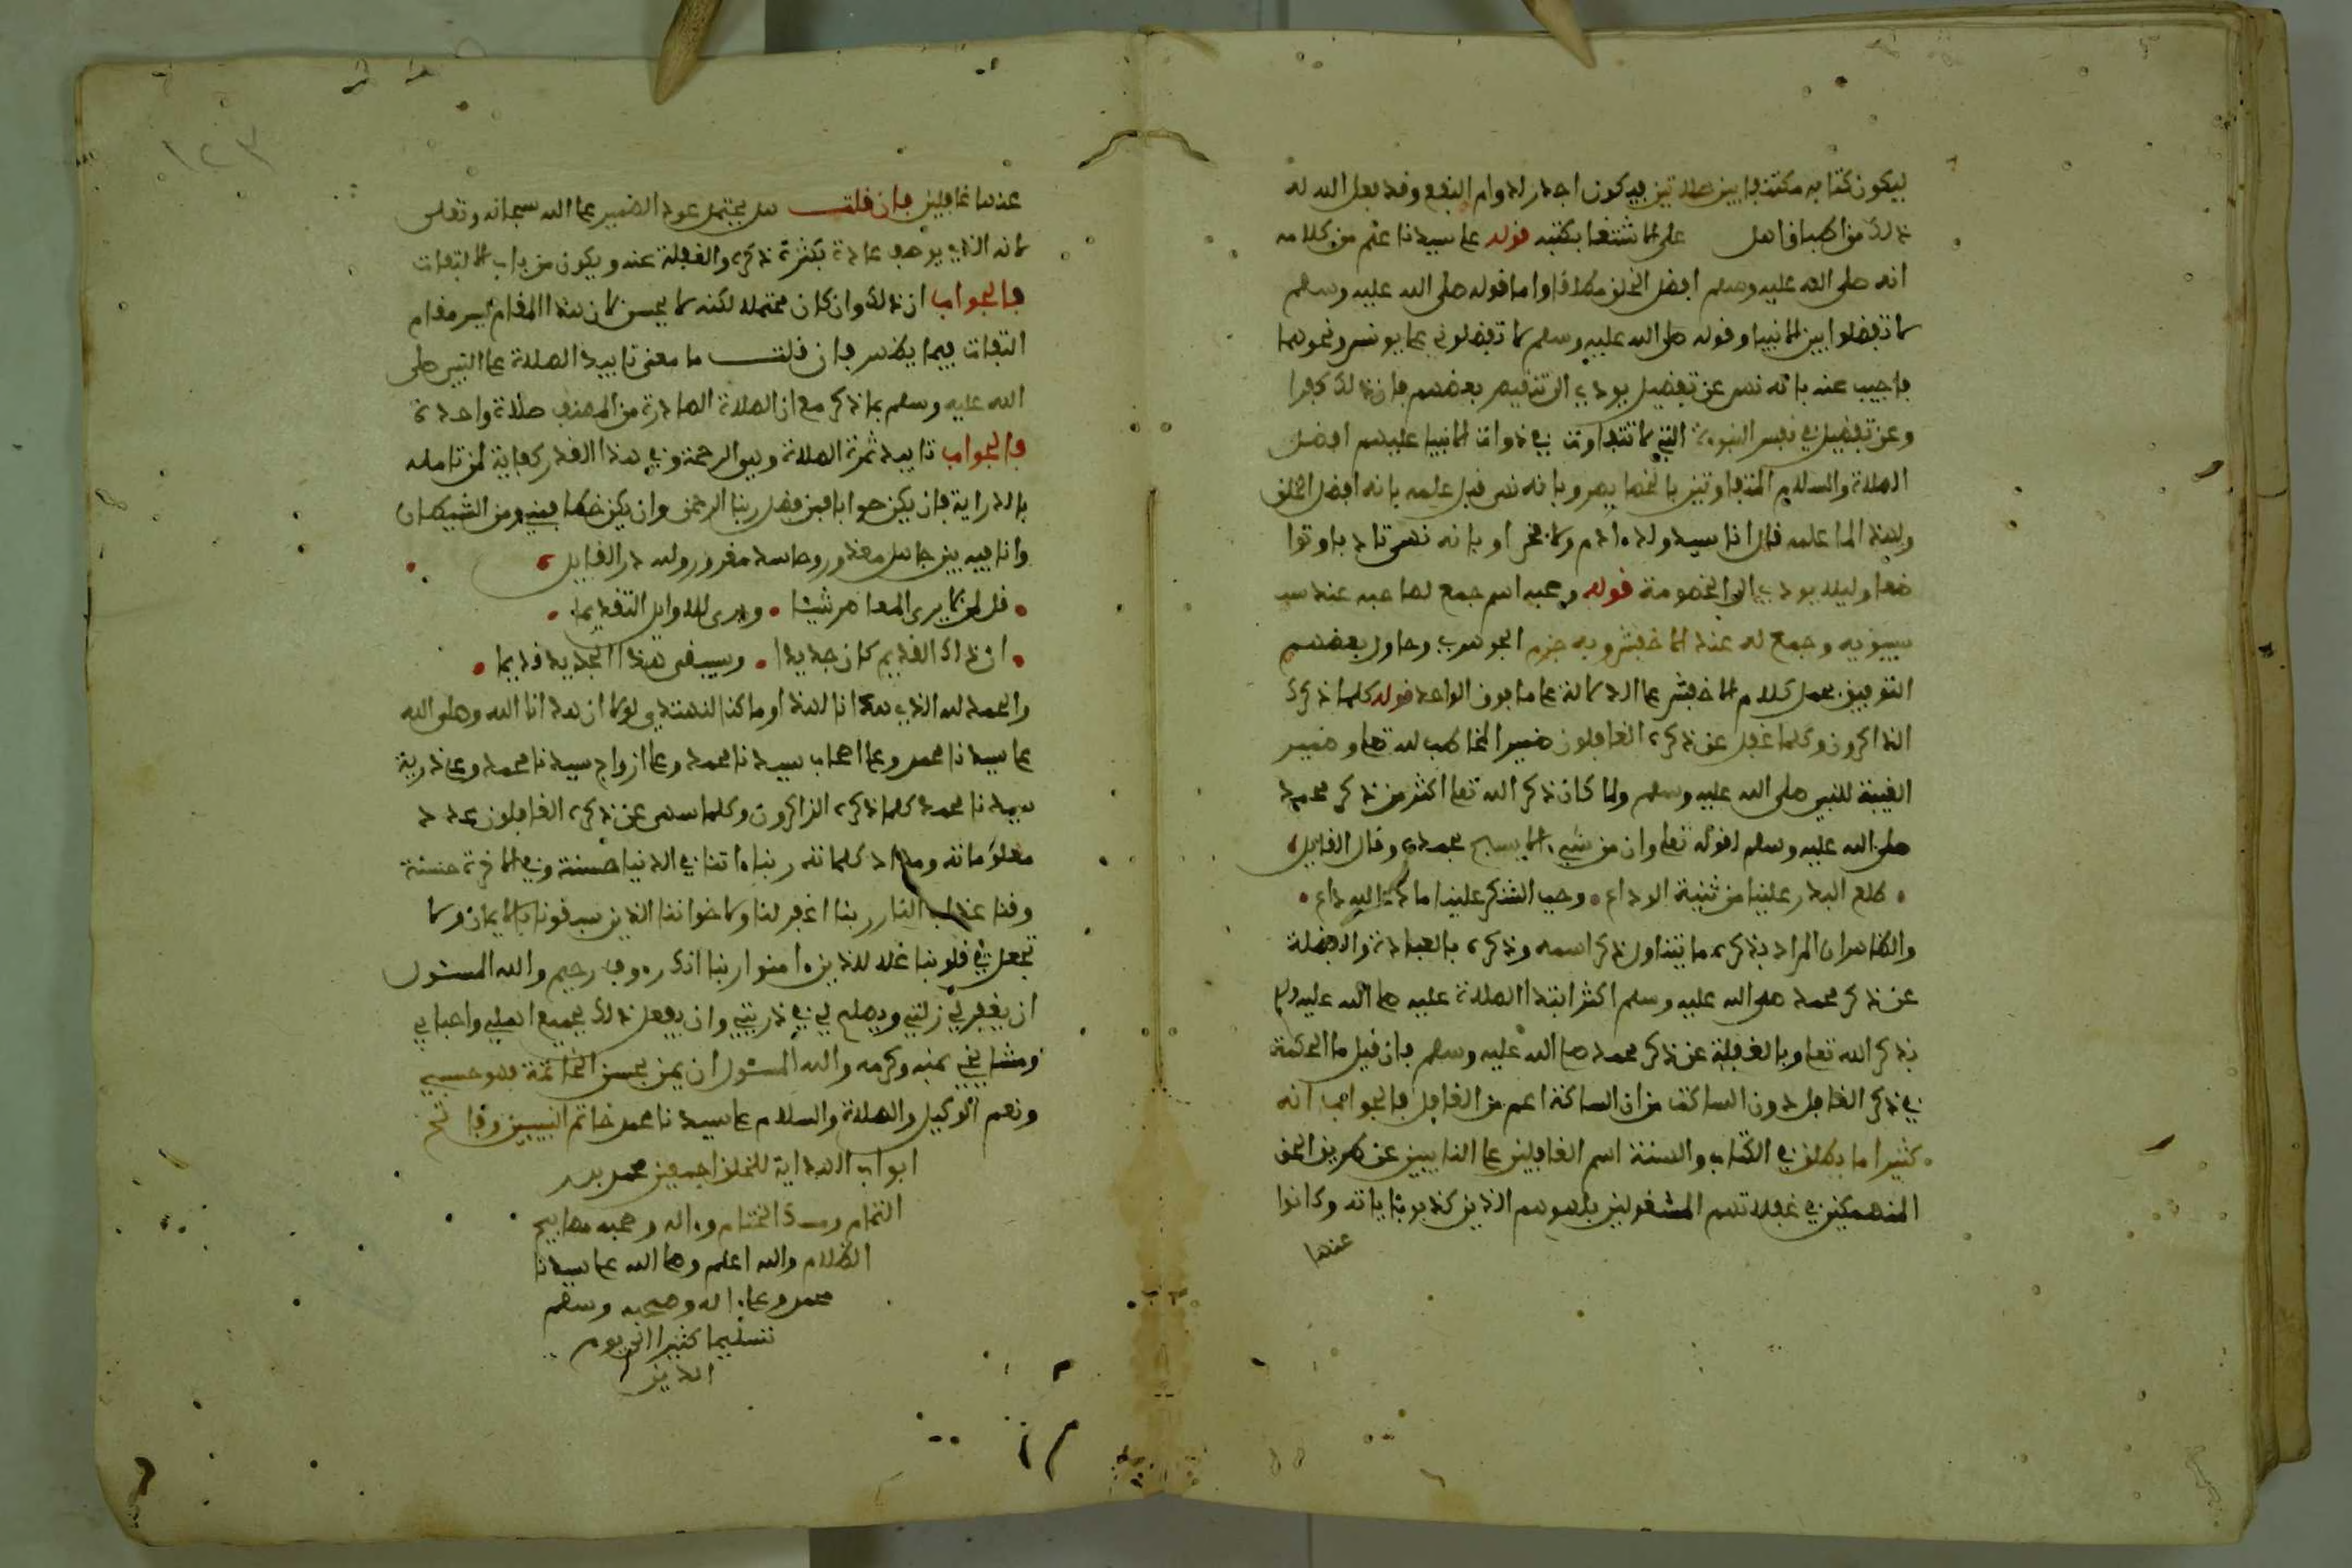 ليكون كتابه مكتنفا بين صلاتين فيكون اجدر لدوام النفع وقد فعل الله له
ذلك من اكبا فاهل على الاشتغا بكتبه قوله على سيدنا علم من كلامه
انه صلى الله عليه وسلم افضل الخلق مطلقا واما قوله صلى الله عليه وسلم
لا تفضلوا بين الانبيا وقوله صلى الله عليه وسلم لا تفضلوني على يونس ونحوهما
فاجيب عنه بانه نهى عن تفضيل يودي الى تنقيص بعضهم فان ذلك كفرا
وعن تفضيل في نفس النبوءة التي لا تتفاوت في ذوات الانبيا عليهم افضل
الصلاة والسلام المتفاوتين بالخصايص وبانه نهى قبل علمه بانه افضل الخلق
ولهذا لما علمه قال انا سيد ولد ءادم ولا فخر او بانه نهى تادبا وتوا
ضعا وليلا يودي الى الخصومة قوله وصحبه اسم جمع لصاحبه عند سيـ
سيبويه وجمع له عند الاخفش وبه جزم الجوهري وحاول بعضهم
التوفيق بحمل كلام الاخفش على الدلالة على ما فوق الواحد قوله كلما ذكرك
الذاكرون وكلما غفل عن ذكره الغافلون ضمير الخاطب لله تعلى وضمير
الغيبة للنبي صلى الله عليه وسلم ولما كان ذكر الله تعلى اكثر من ذكر محمد
صلى الله عليه وسلم لقوله تعلى وان من شيء الا يسبح بحمده وقال القايل
طلع البدر علينا من ثنية الوداع • وجب الشكر علينا ما دعا لله داع •
والظاهر ان المراد بذكره ما يتناول ذكر اسمه وذكره بالعبادة والغفلة
عن ذكر محمد صلى الله عليه وسلم اكثر ابتدا الصلاة عليه صلى الله عليه وسلم
بذكر الله تعلى وبالغفلة عن ذكر محمد صلى الله عليه وسلم فان قيل ما الحكمة
في ذكر الغافل دون الساكت من ان الساكت اعم من الغافل فالجواب انه
كثيرا ما يطلق في الكتاب والسنة اسم الغافلين على الغايبين عن طريق الحق
المنهمكين في غفلاتهم المشغولين بلهوهم الذين كذبوا باياته وكانوا
عنها
١٢٣
عنها غافلين فان قلت هل يحتمل عود الضمير على الله سبحانه وتعلى
لانه الذي يوصف عادة بكثرة ذكره والغفلة عنه ويكون من باب الالتفات
فالجواب ان ذلك وان كان محتملا لكنه لا يحسن لان هذا المقام ليس مقام
التفات فيما يظهر فان قلت ما معنى تابيد الصلاة على النبي صلى
الله عليه وسلم بما ذكر مع ان الصلاة الصادرة من المصنف صلاة واحدة
فالجواب تابيد ثمرة الصلاة وهو الرحمة وفي هذا القدر كفاية لمن تامله
بالدراية فان يكن صوابا فمن فضل ربنا الرحمن وان يكن خطا فمني ومن الشيطان
وانا فيه بين جاهل معذور وحاسد مغرور ولله در القايل
• قل لمن لا يرى المعاصر شيئا • ويرى للاوايل التقديما •
• ان ذاك القديم كان جديدا • وسيبقى هذا الجديد قديما •
والحمد لله الذي هدانا لهذا وما كنا لنهتدي لولا ان هدانا الله وصلى الله
على سيدنا محمد وعلى اصحاب سيدنا محمد وعلى ازواج سيدنا محمد وعلى ذرية
سيدنا محمد كلما ذكره الذاكرون وكلما سهى عن ذكره الغافلون عدد
معلوماته ومداد كلماته ربنا ءاتنا في الدنيا حسنة وفي الاخرة حسنة
وقنا عذاب النار ربنا اغفر لنا ولاخواننا الذين سبقونا بالايمان ولا
تجعل في قلوبنا غلا للذين ءامنوا ربنا انك رءوف رحيم والله المسئول
ان يغفر لي زلتي ويصلح لي في ذريتي وان يفعل ذلك بجميع اهلي واحبابي
ومشايخي بمنه وكرمه والله المسئول ان يمن بحسن الخاتمة فهو حسبي
ونعم الوكيل والصلاة والسلام على سيدنا محمد خاتم النبيين وفاتح
ابواب الهداية للخلق اجمعين محمد بدر
التمام ومسك الختام وءاله وصحبه مصابيح
الظلام والله اعلم وصلى الله على سيدنا
محمد وعلى ءاله وصحبه وسلم
تسليما كثيرا الى يوم
الدين